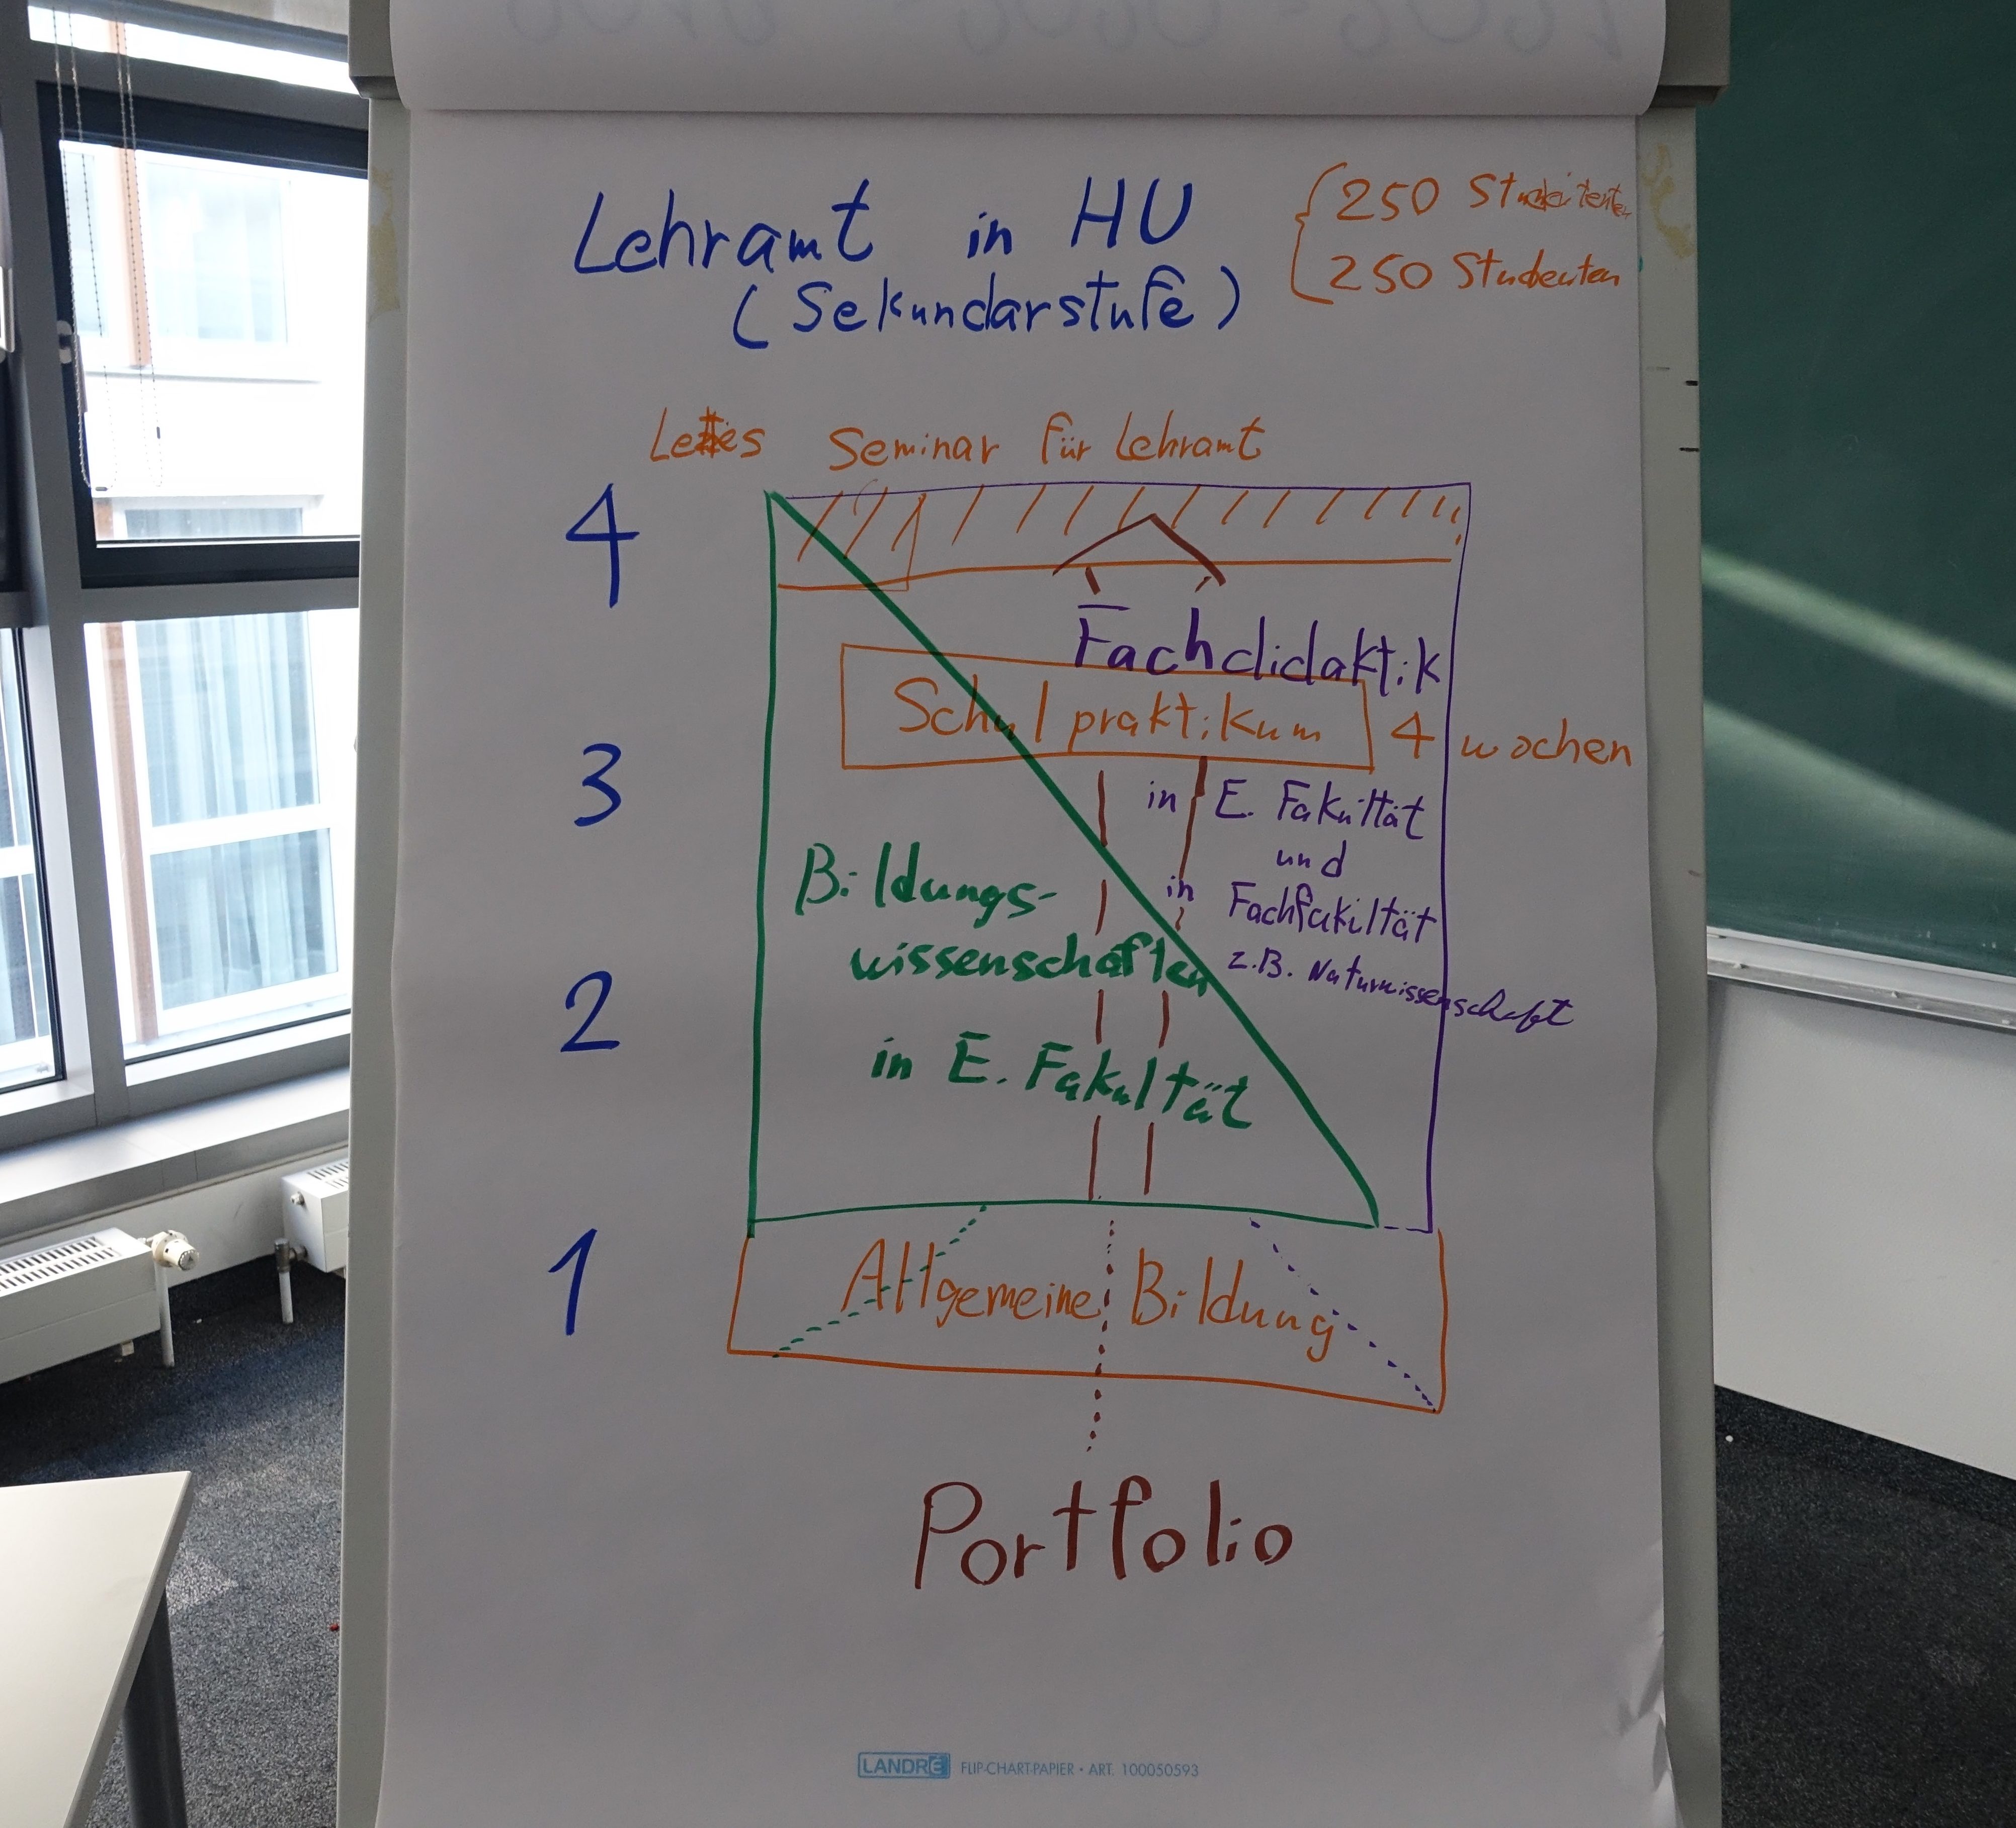 Lehramt in HU
(Sekundarstufe)
250
250 Studenten
Seminar für Lehramt
4
Fachdidaktik
Schulpraktikum 4 wochen
3
in E. Fakultät
und
in Fachfakiltät
z.B. Naturwissenschaft
Bildungs-
wissenschaften
2
in E. Fakultät
1
Allgemeine Bildung
Portfolio
LANDRÉ FLIP-CHART-PAPIER • ART. 100050593